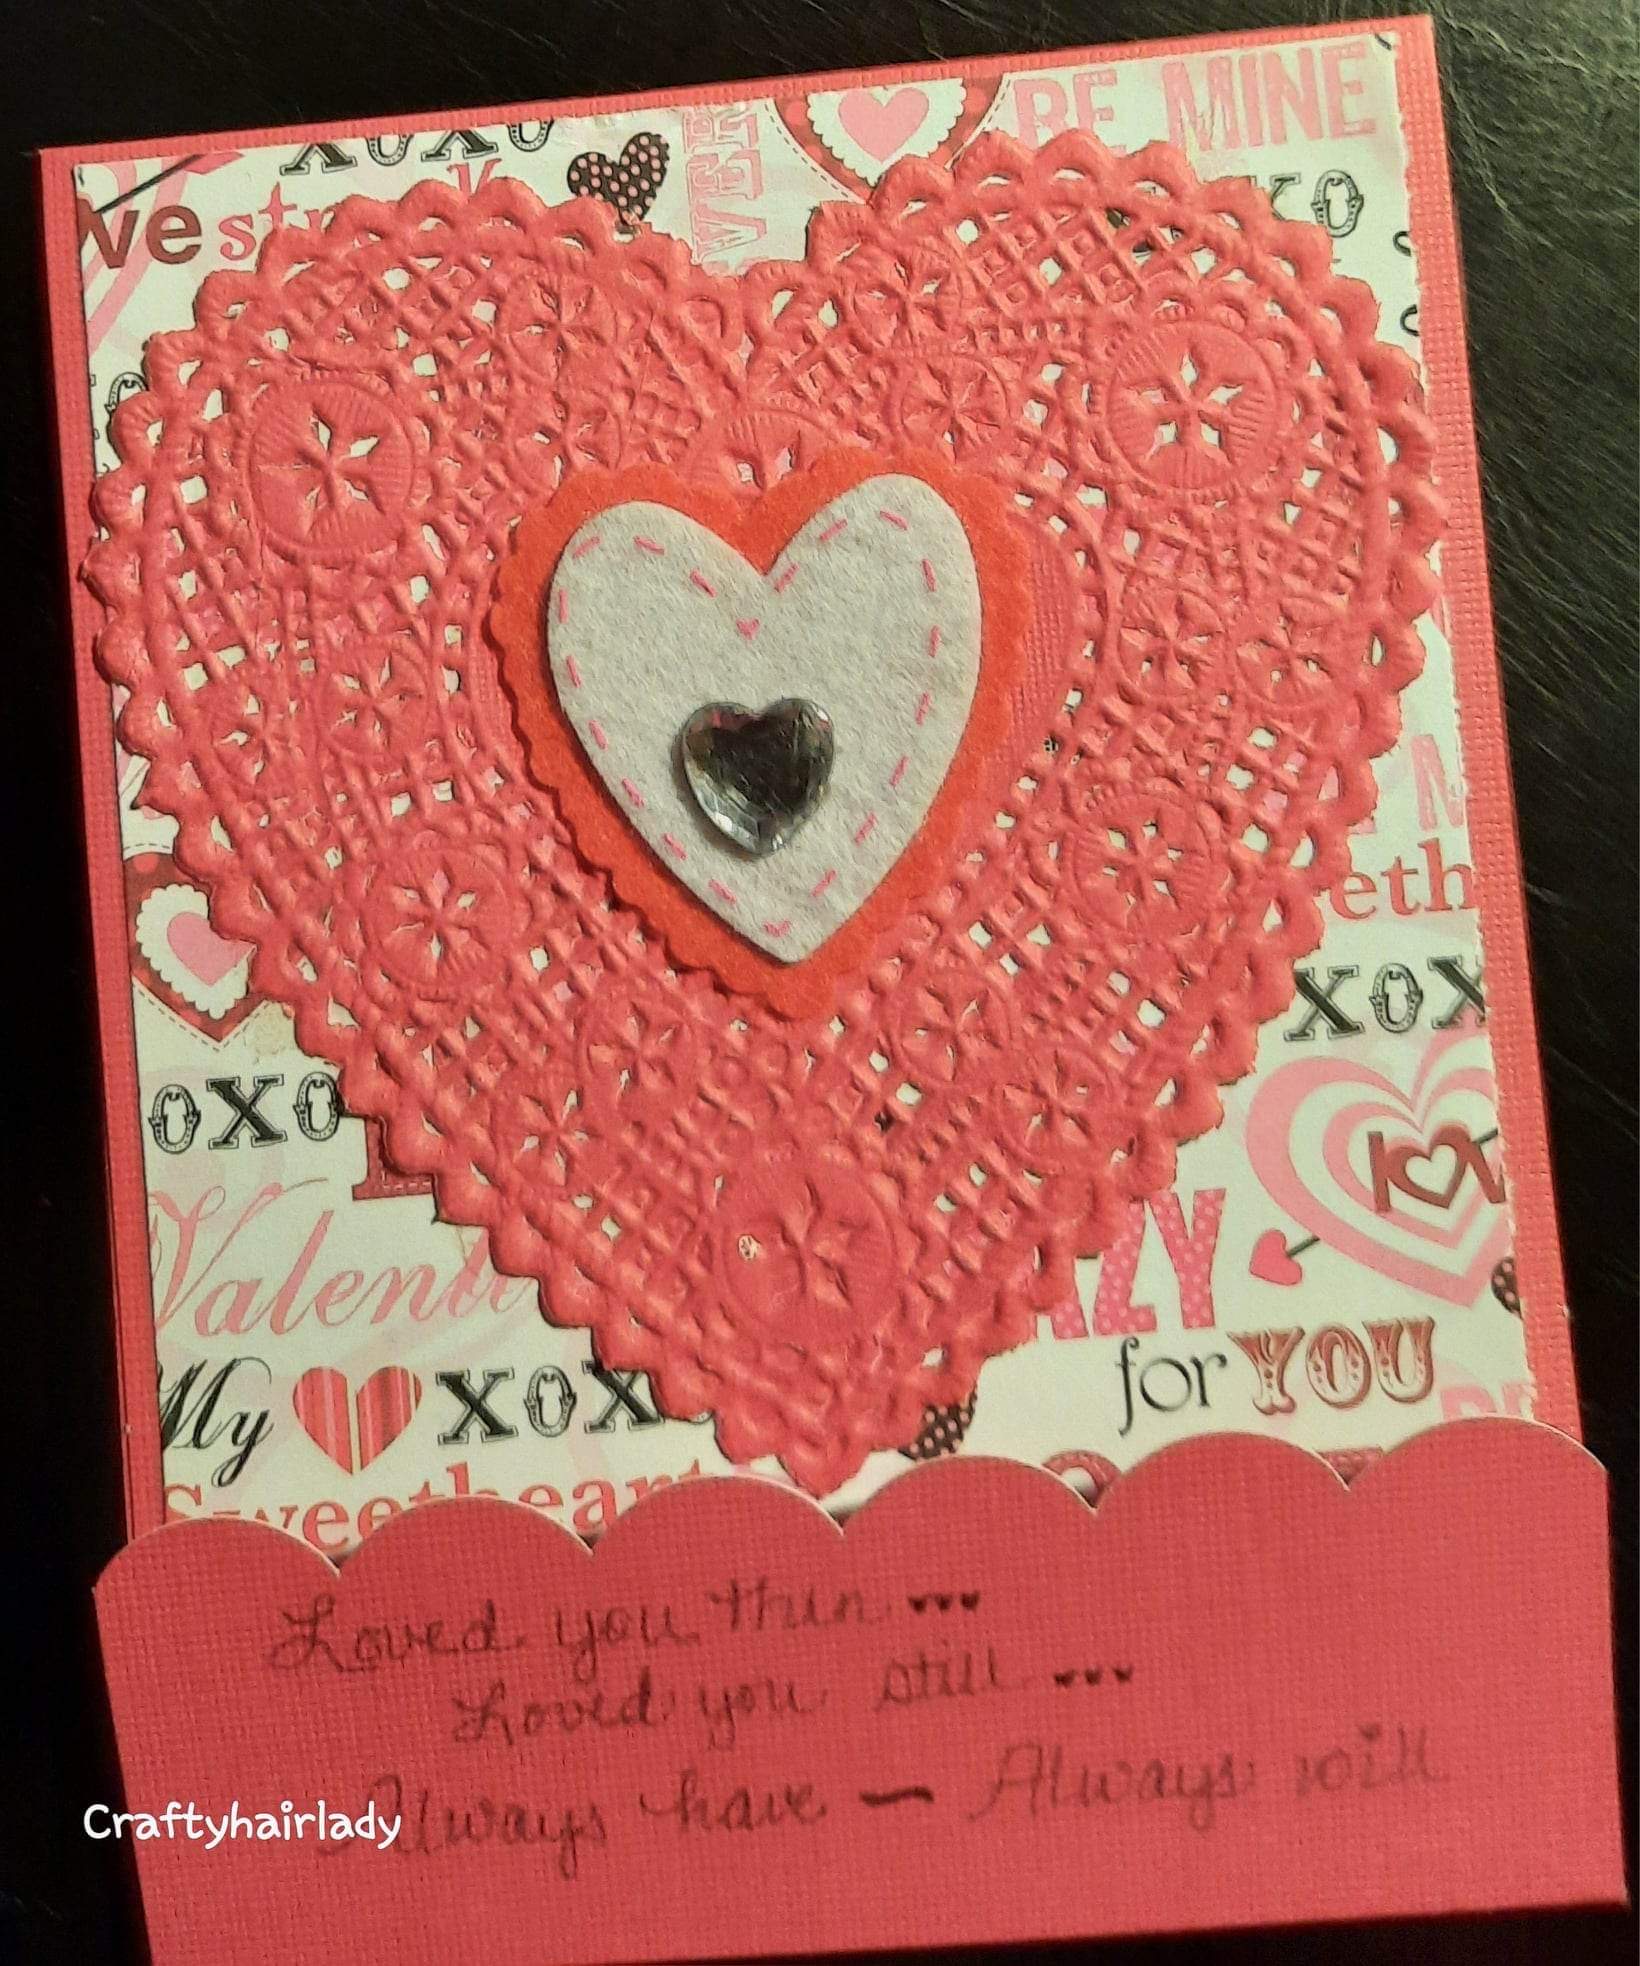 XOXO
BE MINE
ve str
XO
eth
XOX
OXO
lov
Valenti
AZY
My XOX
for YOU
Sweetheart
Loved you then ...
Loved you still ...
Always have - Always will
Craftyhairlady